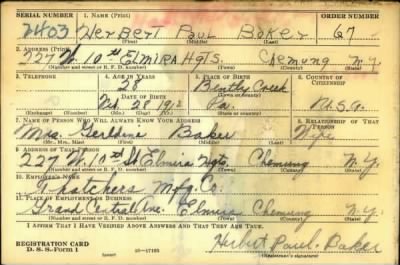 SERIAL NUMBER 1. NAME (Print) ORDER NUMBER
2403 Herbert Paul Baker 67
(First) (Middle) (Last)
2. ADDRESS (Print)
227 W. 10th Elmira Hgts. Chemung N.Y.
(Number and street or R. F. D. number) (Town) (County) (State)
3. TELEPHONE 4. AGE IN YEARS 5. PLACE OF BIRTH 6. COUNTRY OF CITIZENSHIP
28 Bently Creek
DATE OF BIRTH (Town or county)
Feb. 28 1912 Pa. U.S.A.
(Exchange) (Number) (Mo.) (Day) (Yr.) (State or country)
7. NAME OF PERSON WHO WILL ALWAYS KNOW YOUR ADDRESS 8. RELATIONSHIP OF THAT PERSON
Mrs. Geraldine Baker Wife
(Mr., Mrs., Miss) (First) (Middle) (Last)
9. ADDRESS OF THAT PERSON
227 W. 10th St Elmira Hgts. Chemung N.Y.
(Number and street or R. F. D. number) (Town) (County) (State)
10. EMPLOYER'S NAME
Thatchers Mfg. Co.
11. PLACE OF EMPLOYMENT OR BUSINESS
Grand Central Ave. Elmira Chemung N.Y.
(Number and street or R. F. D. number) (Town) (County) (State)
I AFFIRM THAT I HAVE VERIFIED ABOVE ANSWERS AND THAT THEY ARE TRUE.
REGISTRATION CARD
D. S. S. Form 1 16-17105 Herbert Paul. Baker
(over) (Registrant's signature)